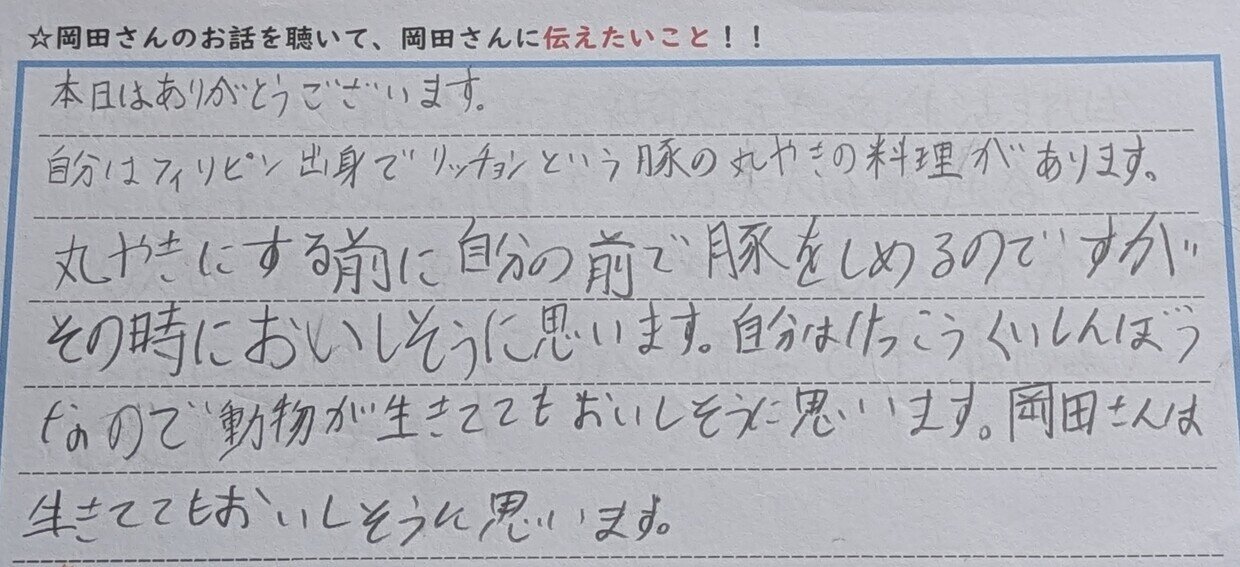 ☆岡田さんのお話を聴いて、岡田さんに伝えたいこと！！
本日はありがとうございます。
自分はフィリピン出身でリッチョンという豚の丸やきの料理があります。
丸やきにする前に自分の前で豚をしめるのですが
その時においしそうに思います。自分はけっこうくいしんぼう
なので動物が生きててもおいしそうに思います。岡田さんは
生きててもおいしそうに思います。